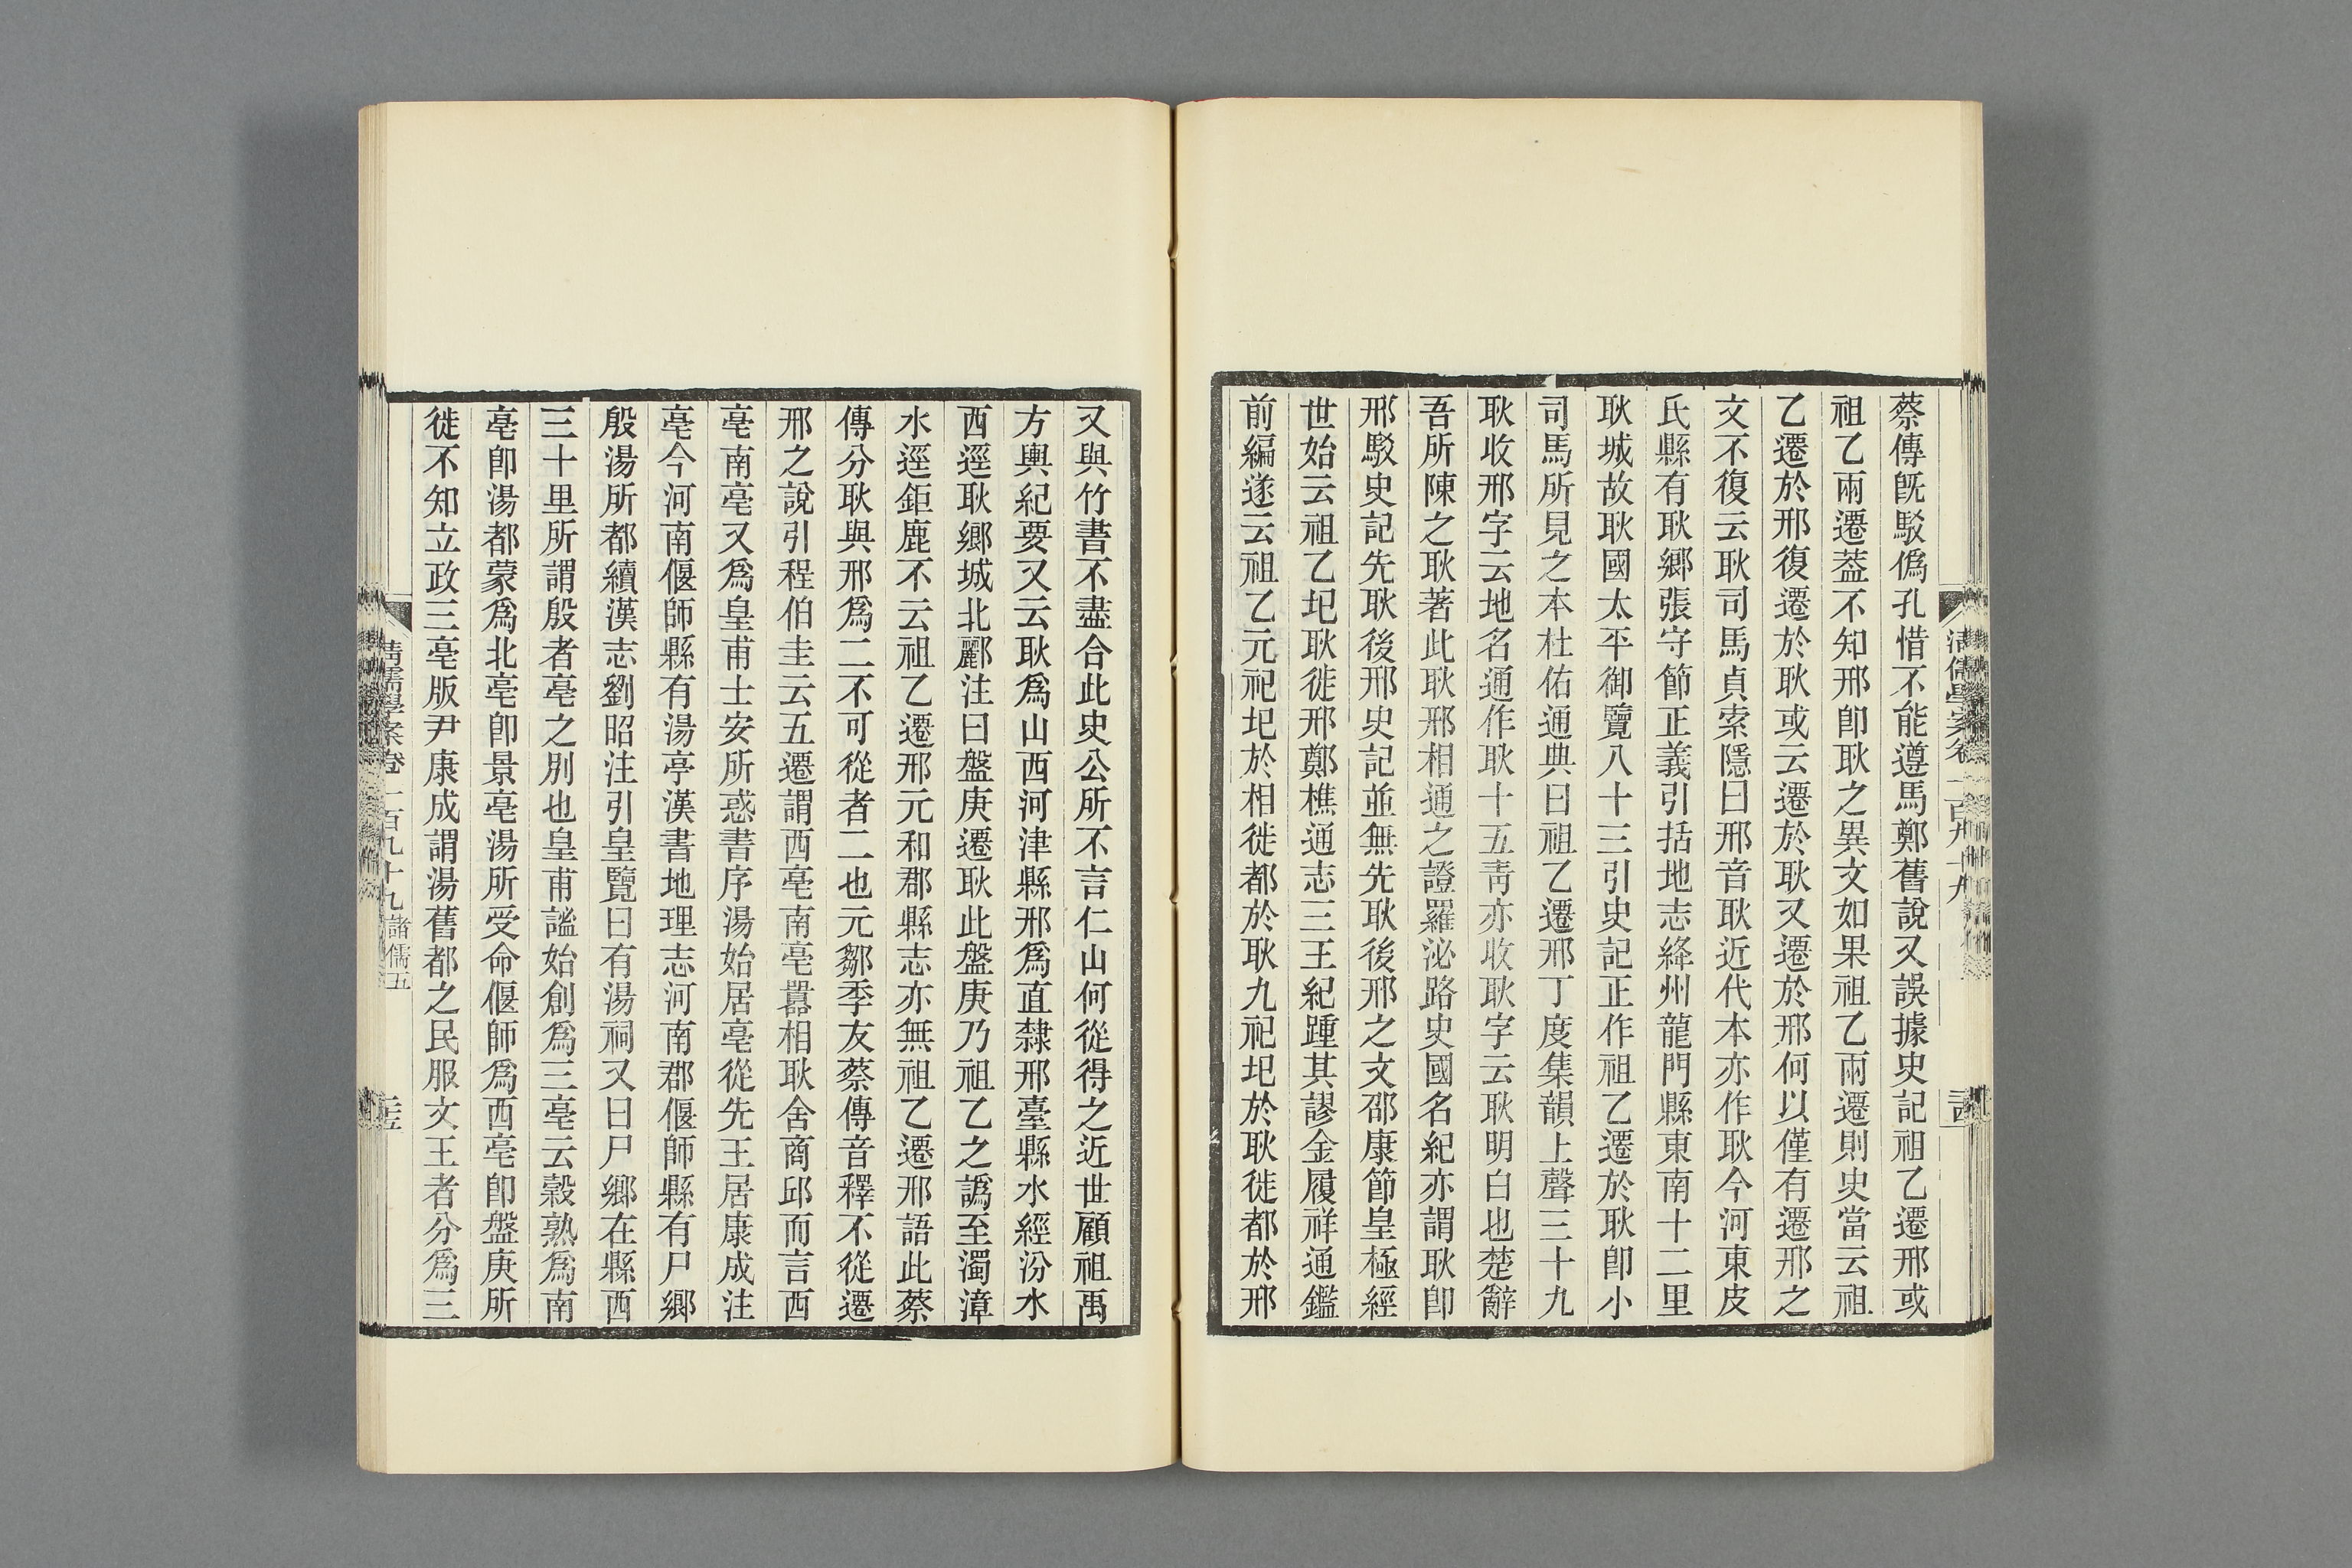 蔡傳旣駁僞孔惜不能遵馬鄭舊說又誤據史記祖乙遷邢或
祖乙兩遷葢不知邢卽耿之異文如果祖乙兩遷則史當云祖
乙遷於邢復遷於耿或云遷於耿又遷於邢何以僅有遷邢之
文不復云耿司馬貞索隱曰邢音耿近代本亦作耿今河東皮
氏縣有耿鄉張守節正義引括地志絳州龍門縣東南十二里
耿城故耿國太平御覽八十三引史記正作祖乙遷於耿卽小
司馬所見之本杜佑通典曰祖乙遷邢丁度集韻上聲三十九
耿收邢字云地名通作耿十五靑亦收耿字云耿明白也楚辭
吾所陳之耿著此耿邢相通之證羅泌路史國名紀亦謂耿卽
邢駁史記先耿後邢史記並無先耿後邢之文邵康節皇極經
世始云祖乙圮耿徙邢鄭樵通志三王紀踵其謬金履祥通鑑
前編遂云祖乙元祀圮於相徙都於耿九祀圮於耿徙都於邢
清儒學案卷一百九十九
又與竹書不盡合此史公所不言仁山何從得之近世顧祖禹
方輿紀要又云耿爲山西河津縣邢爲直隸邢臺縣水經汾水
西逕耿鄉城北酈注曰盤庚遷耿此盤庚乃祖乙之譌至濁漳
水逕鉅鹿不云祖乙遷邢元和郡縣志亦無祖乙遷邢語此蔡
傳分耿與邢爲二不可從者二也元鄒季友蔡傳音釋不從遷
邢之說引程伯圭云五遷謂西亳南亳囂相耿舍商邱而言西
亳南亳又爲皇甫士安所惑書序湯始居亳從先王居康成注
亳今河南偃師縣有湯亭漢書地理志河南郡偃師縣有尸鄉
殷湯所都續漢志劉昭注引皇覽曰有湯祠又曰尸鄉在縣西
三十里所謂殷者亳之別也皇甫謐始創爲三亳云穀熟爲南
亳卽湯都蒙爲北亳卽景亳湯所受命偃師爲西亳卽盤庚所
徙不知立政三亳阪尹康成謂湯舊都之民服文王者分爲三
清儒學案卷一百九十九 諸儒五